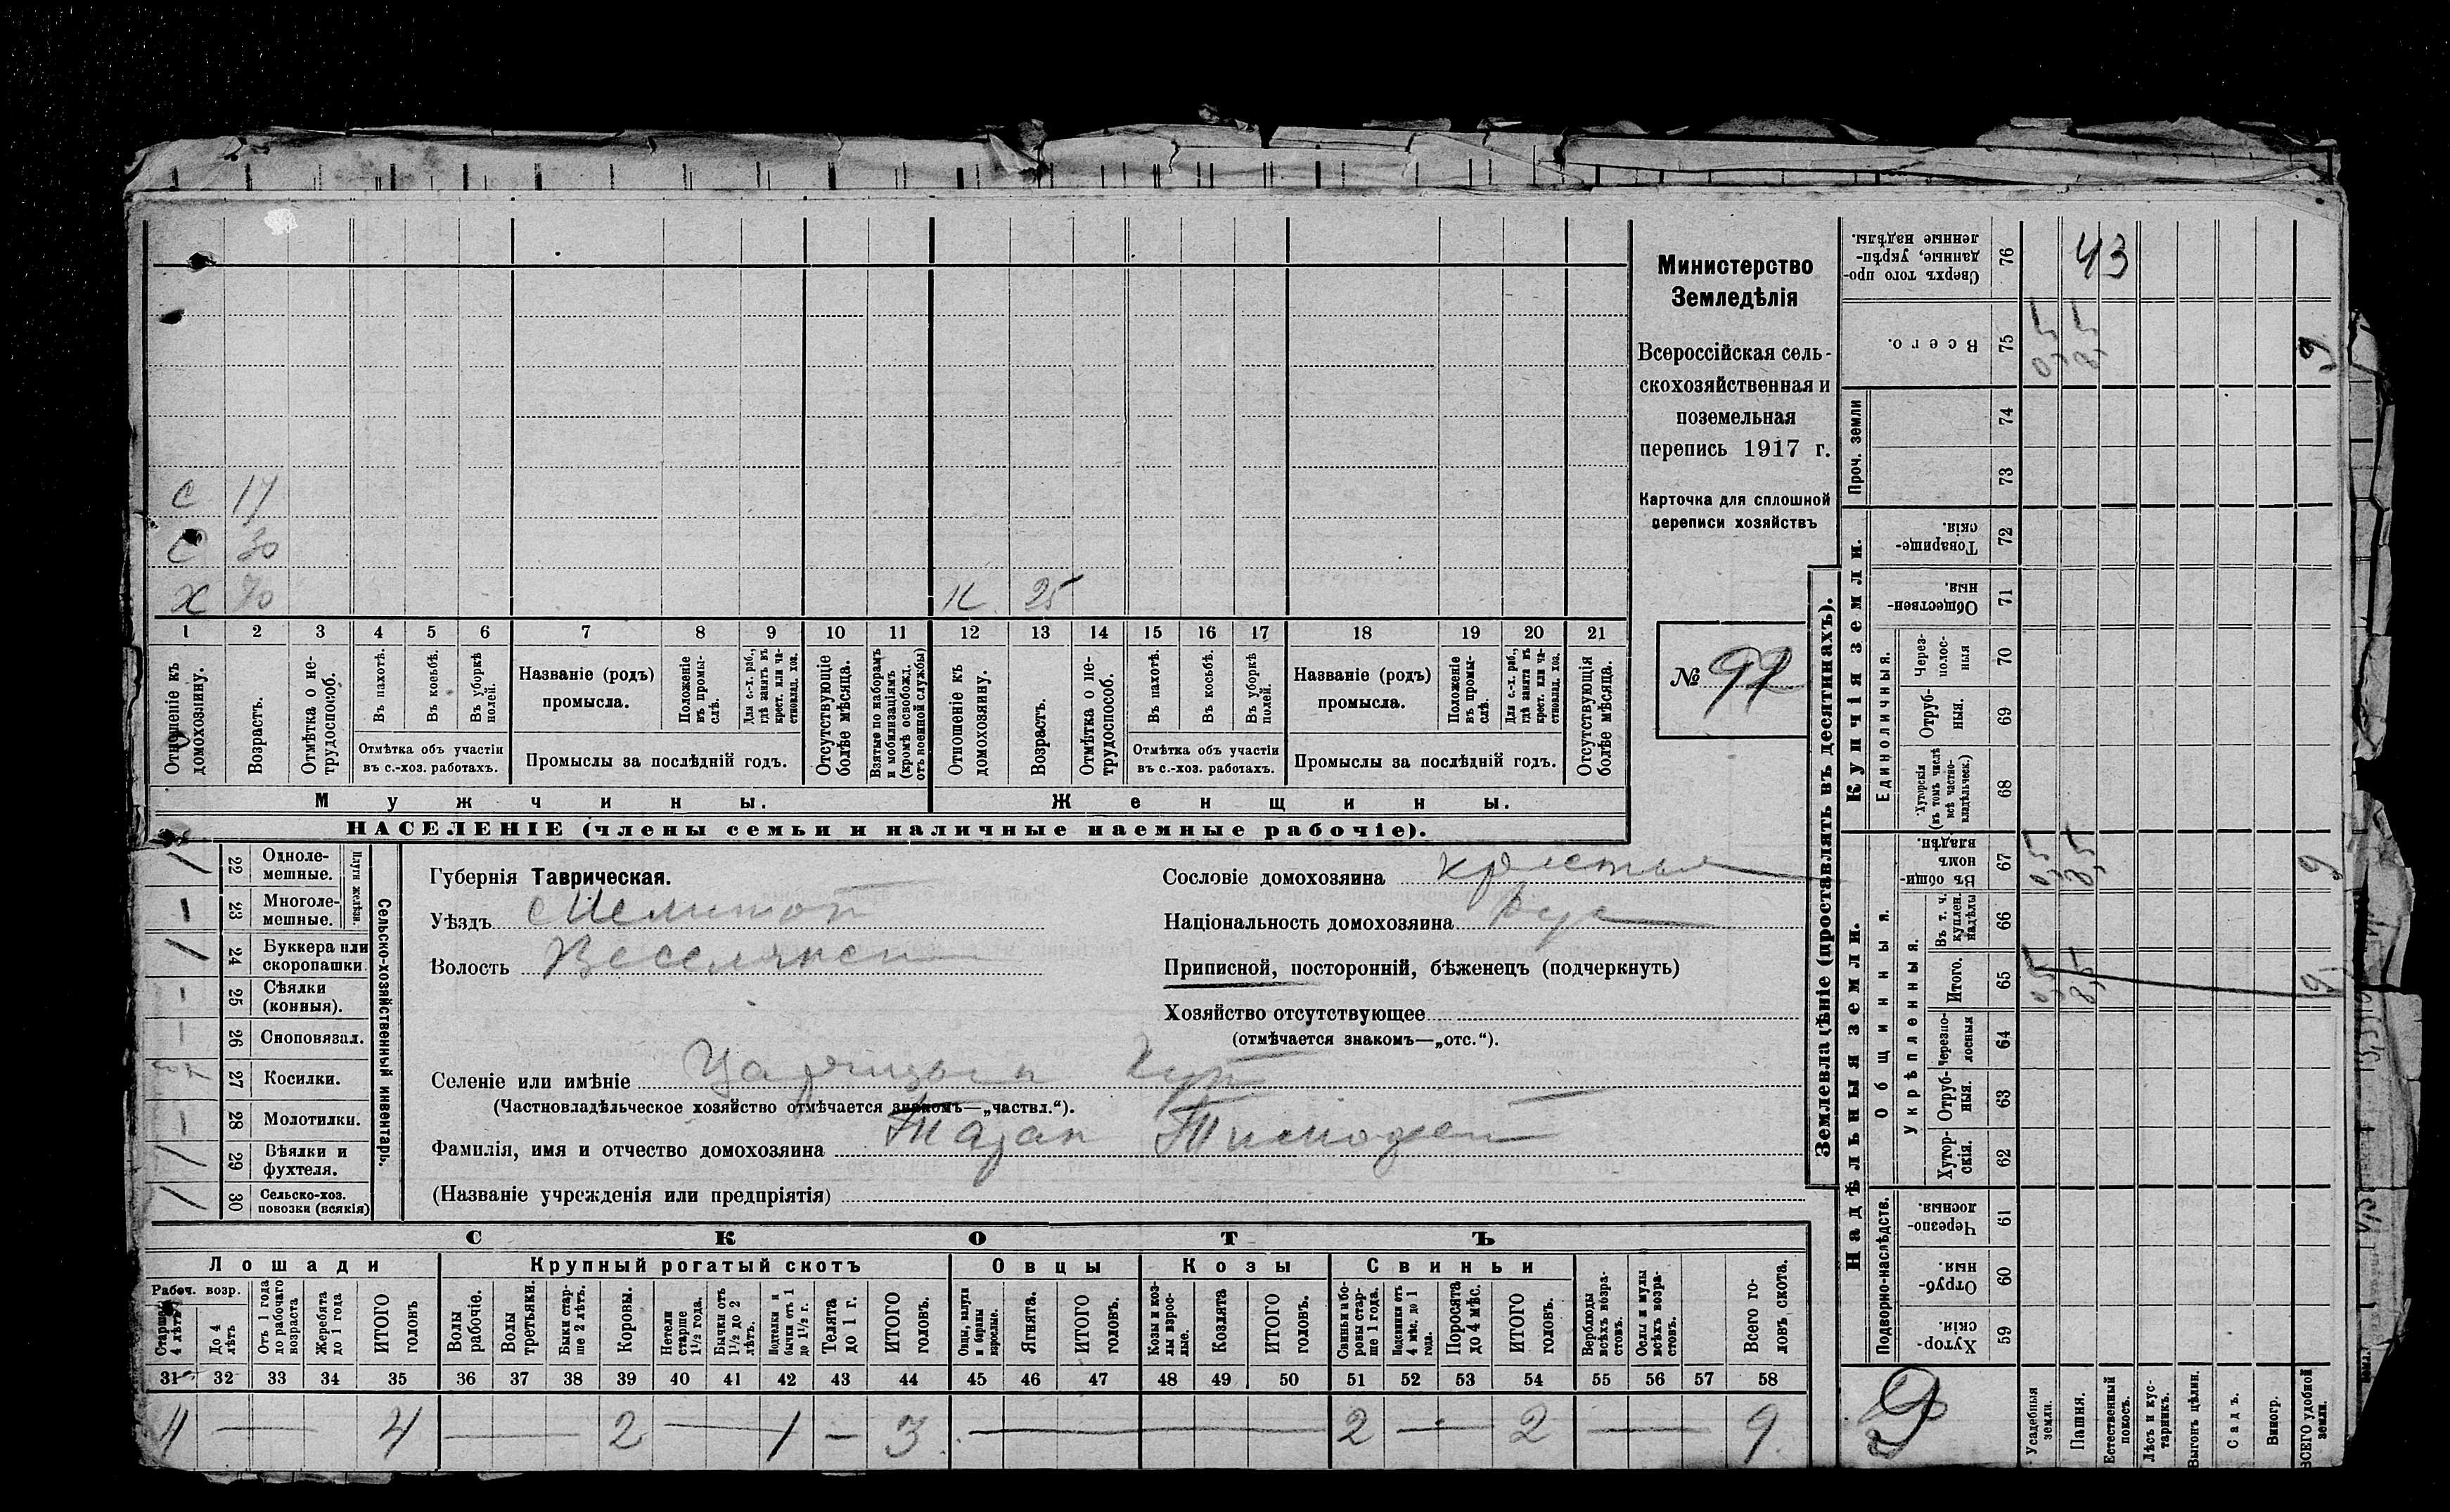 Министерство
Земледѣлія
Всероссійская сель-
скохозяйственная и
поземельная
перепись 1917 г.
Карточка для сплошной
переписи хозяйствъ
№ 92
С 17
С 30
Х 70 К 25
1 2 3 4 5 6 7 8 9 10 11 12 13 14 15 16 17 18 19 20 21
Отношеніе къ домохозяину.
Возрастъ.
Отмѣтка о не-трудоспособ.
Въ пахотѣ.
Въ косьбѣ.
Въ уборкѣ полей.
Отмѣтка объ участіи
въ с.-хоз. работахъ.
Названіе (родъ)
промысла.
Положеніе въ промы-слѣ.
Для с.-х. раб., гдѣ занятъ въ крест. или ча-стновлад. хоз.
Промыслы за послѣдній годъ.
Отсутствующіе болѣе мѣсяца.
Взятые по наборамъ и мобилизаціямъ (кромѣ освобожд. отъ военной службы)
Отношеніе къ домохозяину.
Возрастъ.
Отмѣтка о не-трудоспособ.
Въ пахотѣ.
Въ косьбѣ.
Въ уборкѣ полей.
Отмѣтка объ участіи
въ с.-хоз. работахъ.
Названіе (родъ)
промысла.
Положеніе въ промы-слѣ.
Для с.-х. раб., гдѣ занята въ крест. или ча-стновлад. хоз.
Промыслы за послѣдній годъ.
Отсутствующія болѣе мѣсяца.
Мужчины. Женщины.
НАСЕЛЕНІЕ (члены семьи и наличные наемные рабочіе).
Сельско-хозяйственный инвентарь.
Плуги желѣзн.
22 Одноле-мешные.
23 Многоле-мешные.
24 Буккера или скоропашки.
25 Сѣялки (конныя).
26 Сноповязал.
27 Косилки.
28 Молотилки.
29 Вѣялки и фухтеля.
30 Сельско-хоз. повозки (всякія)
Губернія Таврическая.
Уѣздъ Мелитоп
Волость Веселянск
Сословіе домохозяина крестья
Національность домохозяина Рус
Приписной, посторонній, бѣженецъ (подчеркнуть)
Хозяйство отсутствующее
(отмѣчается знакомъ—„отс.“).
Селеніе или имѣніе Царицын Кут
(Частновладѣльческое хозяйство отмѣчается знакомъ—„частвл.“).
Фамилія, имя и отчество домохозяина Тазан Тимофей
(Названіе учрежденія или предпріятія)
СКОТЪ
Лошади Крупный рогатый скотъ Овцы Козы Свиньи
Рабоч. возр.
Старше 4 лѣтъ
До 4 лѣтъ
Отъ 1 года до рабочаго возраста
Жеребята до 1 года
ИТОГО головъ
Волы рабочіе.
Волы третьяки.
Быки стар-ше 2 лѣтъ.
Коровы.
Нетели старше 1½ года.
Бычки отъ 1½ до 2 лѣтъ.
Подтелки и бычки отъ 1 до 1½ г.
Телята до 1 г.
ИТОГО головъ.
Овцы, валухи и бараны взрослые.
Ягнята.
ИТОГО головъ.
Козы и коз-лы взрос-лые.
Козлята
ИТОГО головъ.
Свиньи и бо-ровы стар-ше 1 года.
Подсвинки отъ 4 мѣс. до 1 года.
Поросята до 4 мѣс.
ИТОГО головъ.
Верблюды всѣхъ возра-стовъ.
Ослы и мулы всѣхъ возра-стовъ.
Всего го-ловъ скота.
31 32 33 34 35 36 37 38 39 40 41 42 43 44 45 46 47 48 49 50 51 52 53 54 55 56 57 58
4 — 4 — 2 — 1 — 3 — 2 — 2 — 9
Землевладѣніе (проставлять въ десятинахъ).
Купчія земли.
Надѣльныя земли.
Сверхъ того про-данные, укрѣп-ленные надѣлы. 76 43
Всего. 75 0,5 8,5 9
Проч. земли
74
73
Товарище-скія. 72
Обществен-ныя. 71
Единоличныя.
Через-полос-ныя 70
Отруб-ныя. 69
Хуторскія (въ томъ числѣ всѣ частно-владѣльческ.) 68
Общинныя.
Въ общин-номъ владѣн. 67 0,5 8,5 9
Въ т. ч. куплен. надѣлы 66
Укрѣпленныя.
Итого. 65 0,5 8,5 9
Черезпо-лосныя 64
Отруб-ныя. 63
Хутор-скія. 62
Подворно-наслѣдств.
Черезпо-лосныя. 61
Отруб-ныя. 60
Хутор-скія 59
9
Усадебныя земли.
Пашня.
Естественный покосъ.
Лѣсъ и кус-тарникъ.
Выгонъ цѣлин.
Садъ.
Виногр.
ВСЕГО удобной земли.